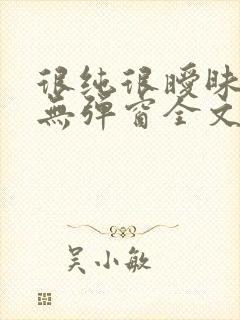 很纯很曖昧
無弹窗全文
吴小敏